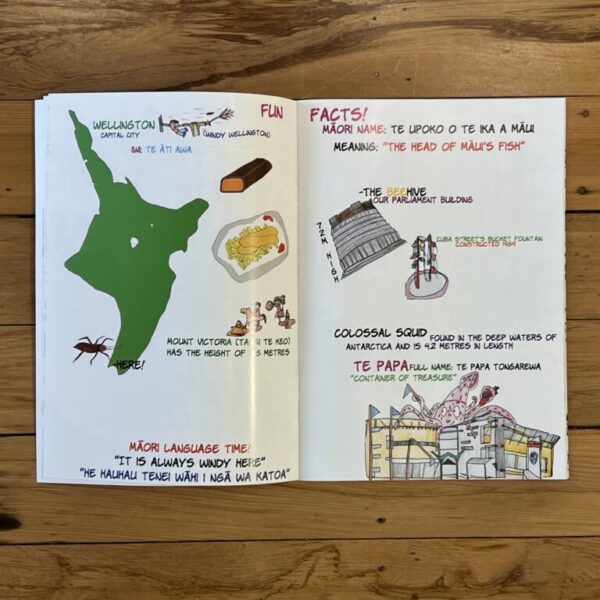 FUN
WELLINGTON
CAPITAL CITY
(WINDY WELLINGTON)
IWI: TE ĀTI AWA
HERE!
MOUNT VICTORIA
HAS THE HEIGHT OF METRES
MĀORI LANGUAGE TIME!
"IT IS ALWAYS WINDY HERE"
"HE HAUHAU TENEI WĀHI I NGĀ WA KATOA"
FACTS!
MĀORI NAME: TE UPOKO O TE IKA A MĀUI
MEANING: "THE HEAD OF MĀUI'S FISH"
-THE BEEHIVE
OUR PARLIAMENT BUILDING
72M HIGH
CUBA STREET'S BUCKET FOUNTAIN
CONSTRUCTED 1969
COLOSSAL SQUID FOUND IN THE DEEP WATERS OF
ANTARCTICA AND IS 4.2 METRES IN LENGTH
TE PAPA FULL NAME: TE PAPA TONGAREWA
"CONTAINER OF TREASURE"